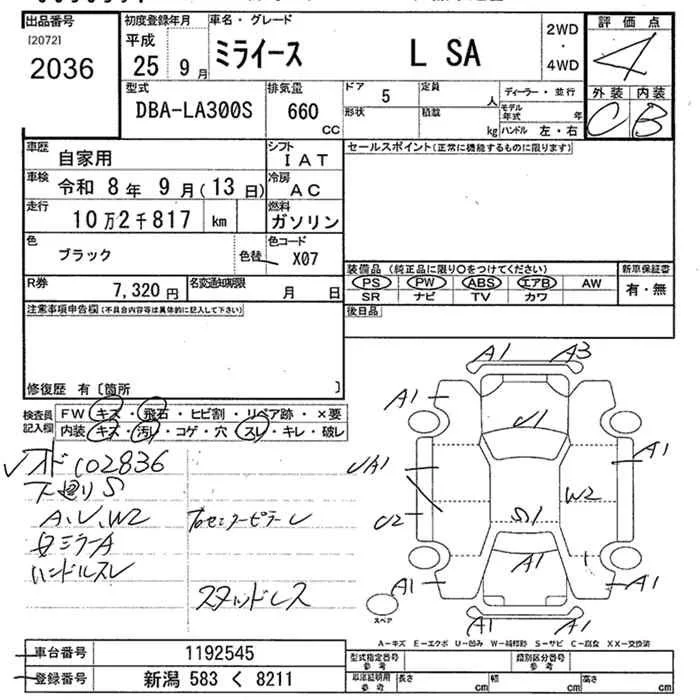 出品番号
[2072]
2036
初度登録年月
平成
25 9月
車名・グレード
ミライース L SA
2WD
・
4WD
評価点
4
外装 内装
C B
型式
DBA-LA300S
排気量
660
CC
ドア
5
定員
人
ディーラー・並行
形状
積載
kg
モデル年式
年
ハンドル 左・右
車歴
自家用
シフト
IAT
セールスポイント(正常に機能するものに限ります)
車検
令和 8年 9月(13日)
冷房
AC
走行
10万2千817 km
燃料
ガソリン
色
ブラック
色替
色コード
X07
装備品 (純正品に限り○をつけてください)
新車保証書
PS PW ABS エアB AW
有・無
SR ナビ TV カワ
R券
7,320円
名変通知期限
月 日
後日品
注意事項申告欄(不具合内容等は具体的に記入して下さい)
修復歴 有〔箇所 〕
検査員
記入欄
FW キズ・飛石・ヒビ割・リペア跡・×要
内装 キズ・汚レ・コゲ・穴・スレ・キレ・破レ
メオド102836
下廻りS
A、U、W2
ミラーA
ハンドルスレ
スタッドレス
A1 A3
A1
U1
A1
UA1
W2
U2
S1
A1
A1
A1
A1 A1
スペア
A-キズ E-エクボ U-凹み W-補修跡 S-サビ C-腐食 XX-交換済
車台番号
1192545
型式指定番号
参考
類別区分番号
参考
登録番号
新潟 583 く 8211
車庫証明用
参考
長さ
cm
幅
cm
高さ
cm